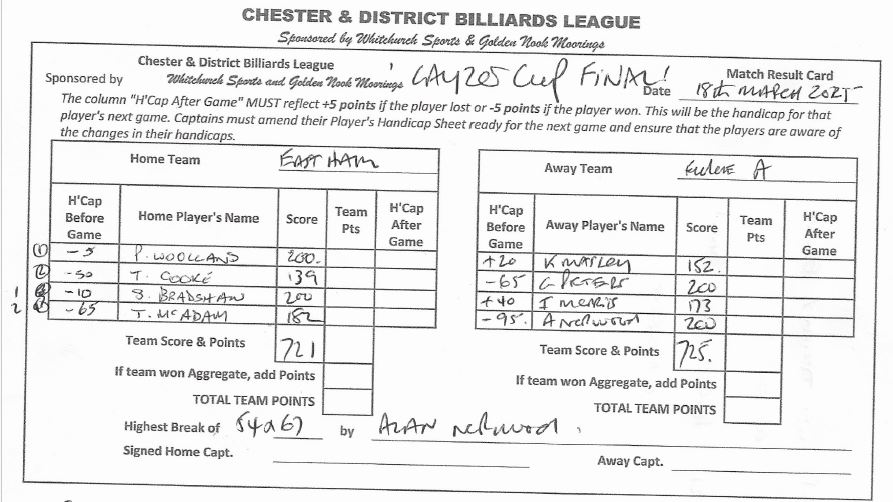 CHESTER & DISTRICT BILLIARDS LEAGUE
Sponsored by Whitchurch Sports & Golden Nook Moorings
Chester & District Billiards League
Sponsored by Whitchurch Sports and Golden Nook Moorings CUP FINAL! Date 18th MARCH 2025 Match Result Card
The column "H'Cap After Game" MUST reflect +5 points if the player lost or -5 points if the player won. This will be the handicap for that
player's next game. Captains must amend their Player's Handicap Sheet ready for the next game and ensure that the players are aware of
the changes in their handicaps.
Home Team EASTHAM
H'Cap Before Game Home Player's Name Score Team Pts H'Cap After Game
① -5 P. WOOLLAND 200.
② -50 T. COOKE 139
1 -10 S. BRADSHAW 200
2 -65 T. MCADAM 182
Team Score & Points 721
If team won Aggregate, add Points
TOTAL TEAM POINTS
Away Team A
H'Cap Before Game Away Player's Name Score Team Pts H'Cap After Game
+20 K 152.
-65 G PETERS 200
+40 I MORRIS 173
-95. A NORWOOD 200
Team Score & Points 725.
If team won Aggregate, add Points
TOTAL TEAM POINTS
Highest Break of 54 & 67 by ALAN NORWOOD
Signed Home Capt. Away Capt.